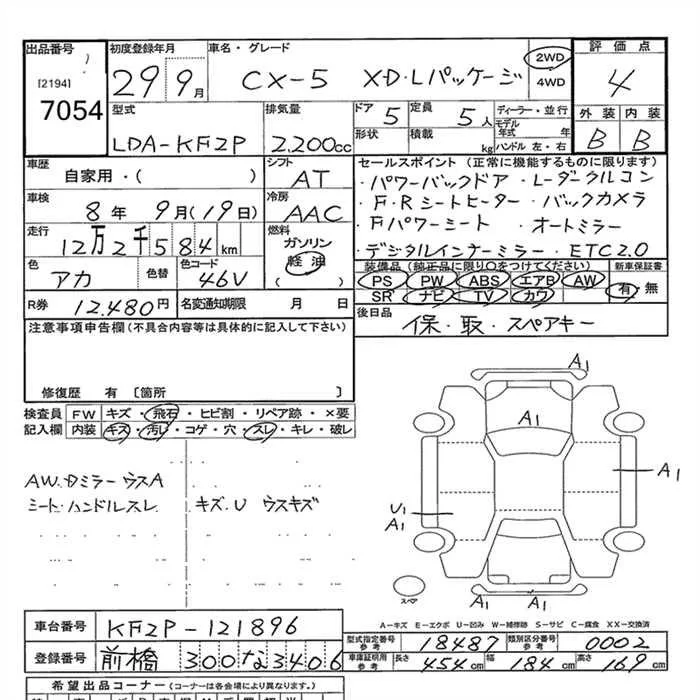 出品番号
[2194]
7054
初度登録年月
29 9月
車名・グレード
CX-5 XD・Lパッケージ
2WD
4WD
評価点
4
外装 内装
B B
型式
LDA-KF2P
排気量
2.200cc
ドア 5
形状
定員 5人
積載 kg
ディーラー・並行
モデル年式 年
ハンドル 左・右
車歴
自家用・( )
シフト
AT
車検
8年 9月(19日)
冷房
AAC
走行
12万2千584km
燃料
ガソリン
軽油
( )
色
アカ
色替
色コード
46V
R券 12.480円
名変通知期限 月 日
セールスポイント (正常に機能するものに限ります)
・パワーバックドア ・レーダークルコン
・F・Rシートヒーター ・バックカメラ
・Fパワーシート ・オートミラー
・デジタルインナーミラー ・ETC2.0
装備品(純正品に限り○をつけてください)
PS PW ABS エアB AW
SR ナビ TV カワ
新車保証書
有・無
後日品
保・取・スペアキー
注意事項申告欄(不具合内容等は具体的に記入して下さい)
修復歴 有 〔箇所 〕
検査員 FW キズ・飛石・ヒビ割・リペア跡・×要
記入欄 内装 キズ・汚レ・コゲ・穴・スレ・キレ・破レ
AW.Dミラー ウスA
シート・ハンドルスレ キズ.U ウスキズ
A1
A1
A1
U1
A1
A1 W A1
スペア
A−キズ E−エクボ U−凹み W−補修跡 S−サビ C−腐食 XX−交換済
車台番号 KF2P-121896
登録番号 前橋 300な3406
型式指定番号 参考 18487
類別区分番号 参考 0002
車庫証明用 参考 長さ 454cm 幅 184cm 高さ 169cm
希望出品コーナー(コーナーは各会場により異なります。)